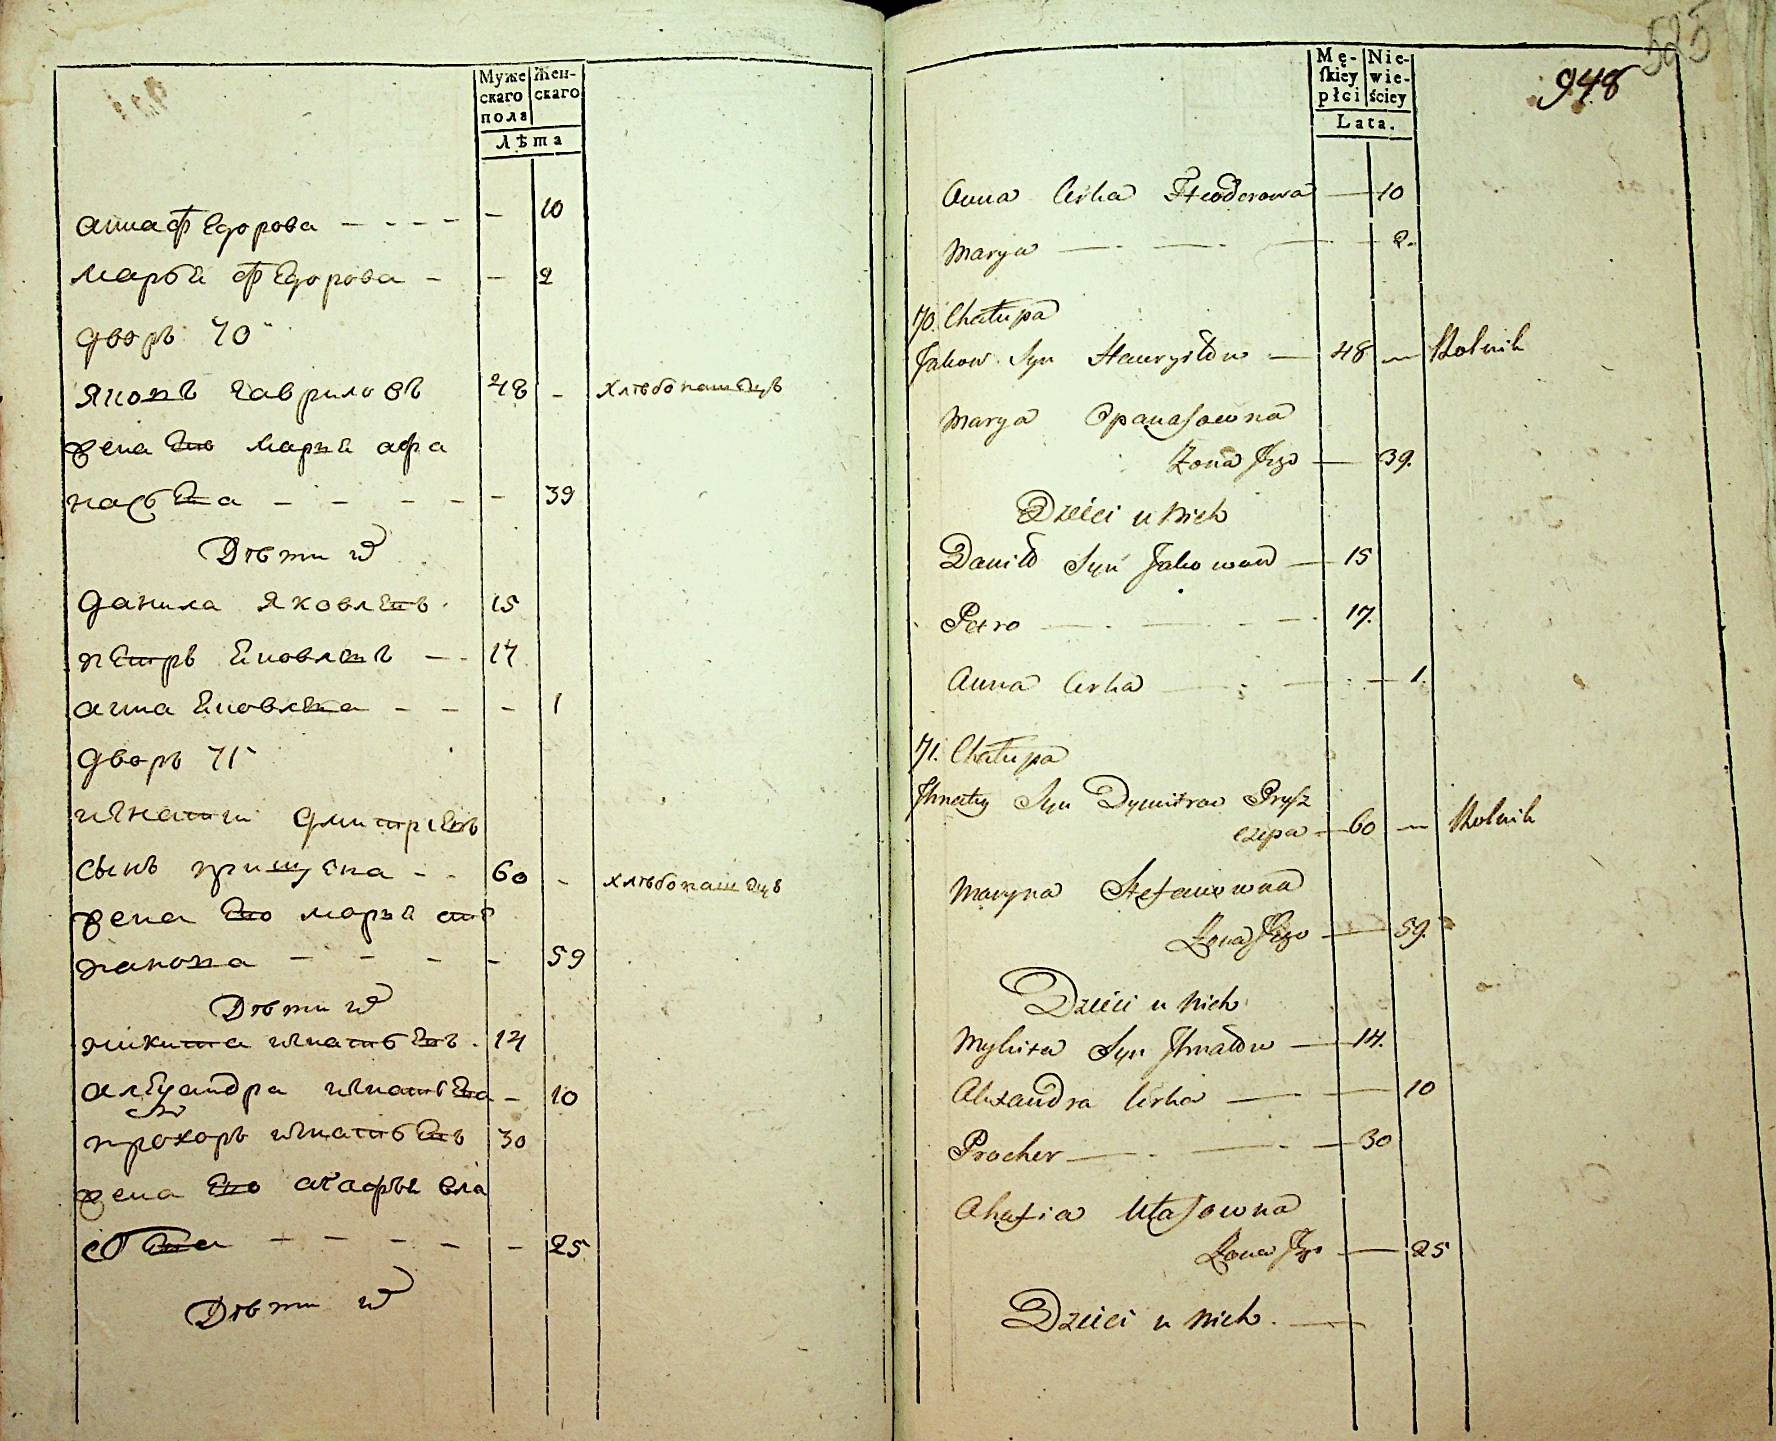 Муже
скаго
пола
Жен-
скаго
Лѣта
анна федорова - - - - - 10
марья федорова - - 2
дворъ 70
яковъ гавриловъ 48 - хлѣбопашецъ
жена его марья афа
насьева - - - - - 39
Дѣти их
данила яковлевъ 15
петръ яковлевъ - - 17
анна яковлева - - - 1
дворъ 71
игнатий дмитриевъ
сынъ прищепа - - 60 - хлѣбопашецъ
жена его марья сте
панова - - - - 59
Дѣти их
никита игнатьевъ 14
александра игнатьева - 10
прохоръ игнатьевъ 30
жена его агафья вла
сова - - - - - 25
Дѣти их
525
948
Mę-
skiey
płci
Nie-
wie-
ściey
Lata.
Anna Corka Fteodorowa — 10
Marya — - — - — 2.
70. Chałupa
Jakow Syn Hawryłow — 48 — Rolnik
Marya Opanasowna
Żona Jego — 39.
Dzieci u Nich
Daniło Syn Jakowow — 15
Petro — - — - - 17.
Anna Corka — - — - — 1.
71. Chałupa
Jhnaty Syn Dymitrow Prysz
czepa — 60 — Rolnik
Maryna Stefanowna
Żona Jego — 59.
Dzieci u Nich
Mykita Syn Jhnatow — 14.
Alexandra Corka — — 10
Procher — - — - — 30
Ahafia Ułasowna
Żona Jego — 25
Dzieci u Nich. —